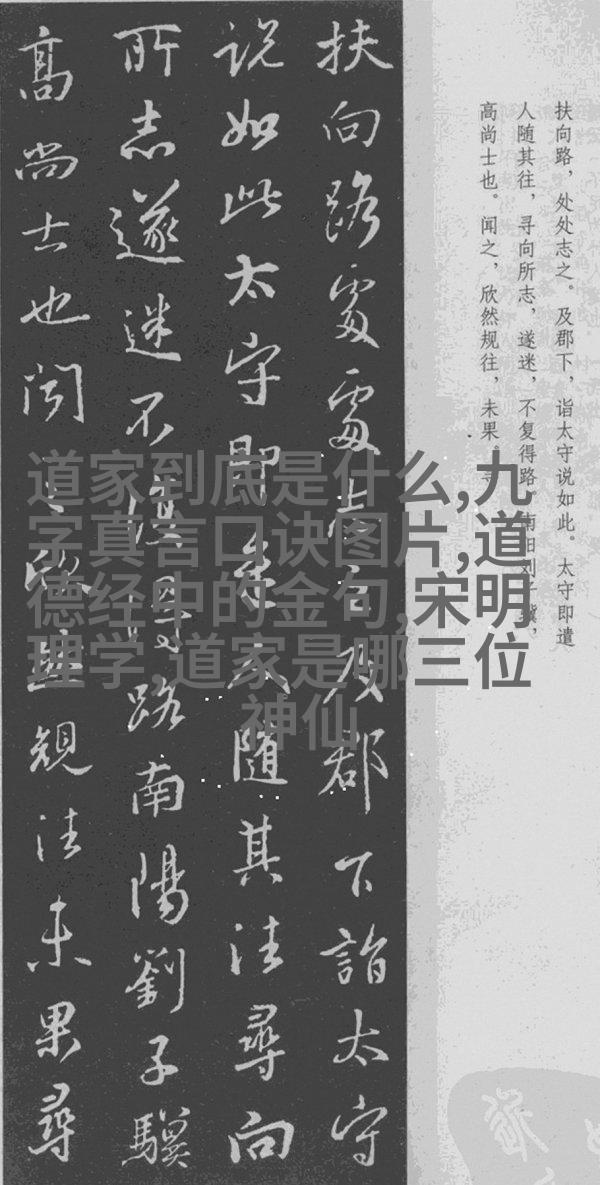 扶向路,处处志之。及郡下,诣太守说如此。太守即遣
人随其往,寻向所志,遂迷,不复得路。南阳刘子骥,
高尚士也。闻之,欣然规往,未果,寻
扶向路處處志之及郡下詣太守
説如此太守即遣人隨其往尋向
所志遂迷不復得路南陽劉子驥
高尚士也聞之欣然規往未果尋
道家到底是什么,九
字真言口诀图片,道
德经中的金句,宋明
理学 道家是哪三位
神仙